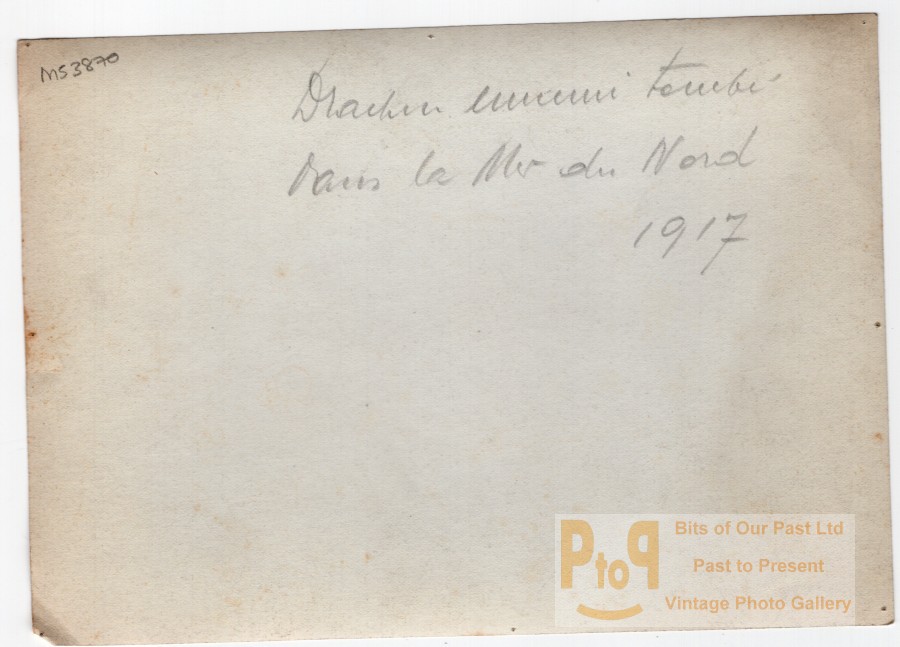 MS3870
Drachen ennemi tombé
dans la Mer du Nord
1917
PtoP
Bits of Our Past Ltd
Past to Present
Vintage Photo Gallery